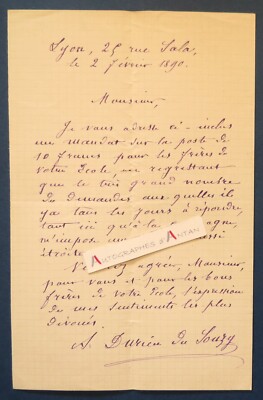 Lyon, 25 rue Sala,
le 2 février 1890.
Monsieur,
Je vous adresse ci-inclus
un mandat sur la poste de
10 francs pour les frères de
votre École, en regrettant
que le très grand nombre
de demandes auxquelles il
y a tous les jours à répondre,
tant ici qu'à la campagne
m'impose une
étroite
AUTOGRAPHES D'ANTAN
Veuillez agréer, Monsieur,
pour vous et pour les bons
frères de votre École, l'expression
de mes sentiments les plus
dévoués.
A. Durieu du Souzy